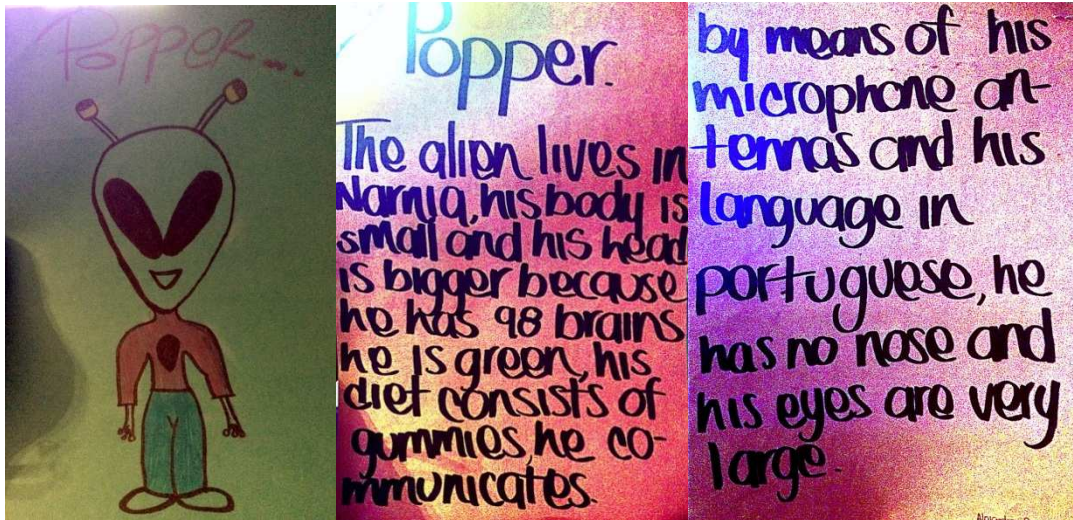 Popper...
Popper.
The alien lives in
Narnia, his body is
small and his head
is bigger because
he has 98 brains
he is green, his
diet consists of
gummies, he co-
mmunicates.
by means of his
microphone an-
tennas and his
language in
portuguese, he
has no nose and
his eyes are very
large.